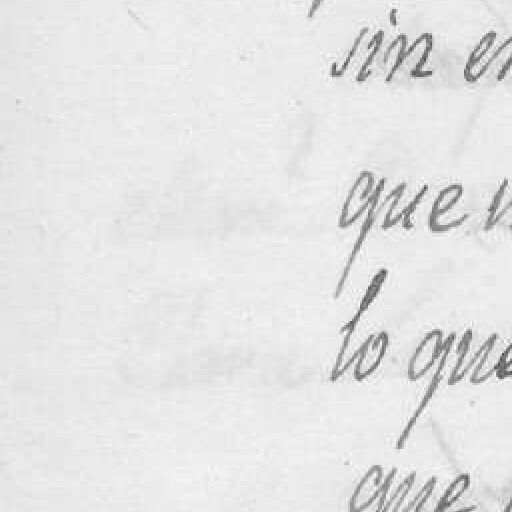 sin
que
lo que
que